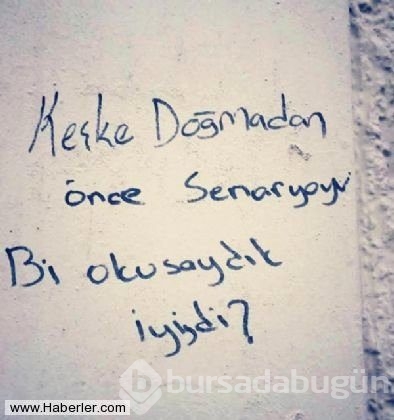 Keşke Doğmadan
önce Senaryoyu
Bi okusaydık
iyiydi?
bursadabugün
www.Haberler.com